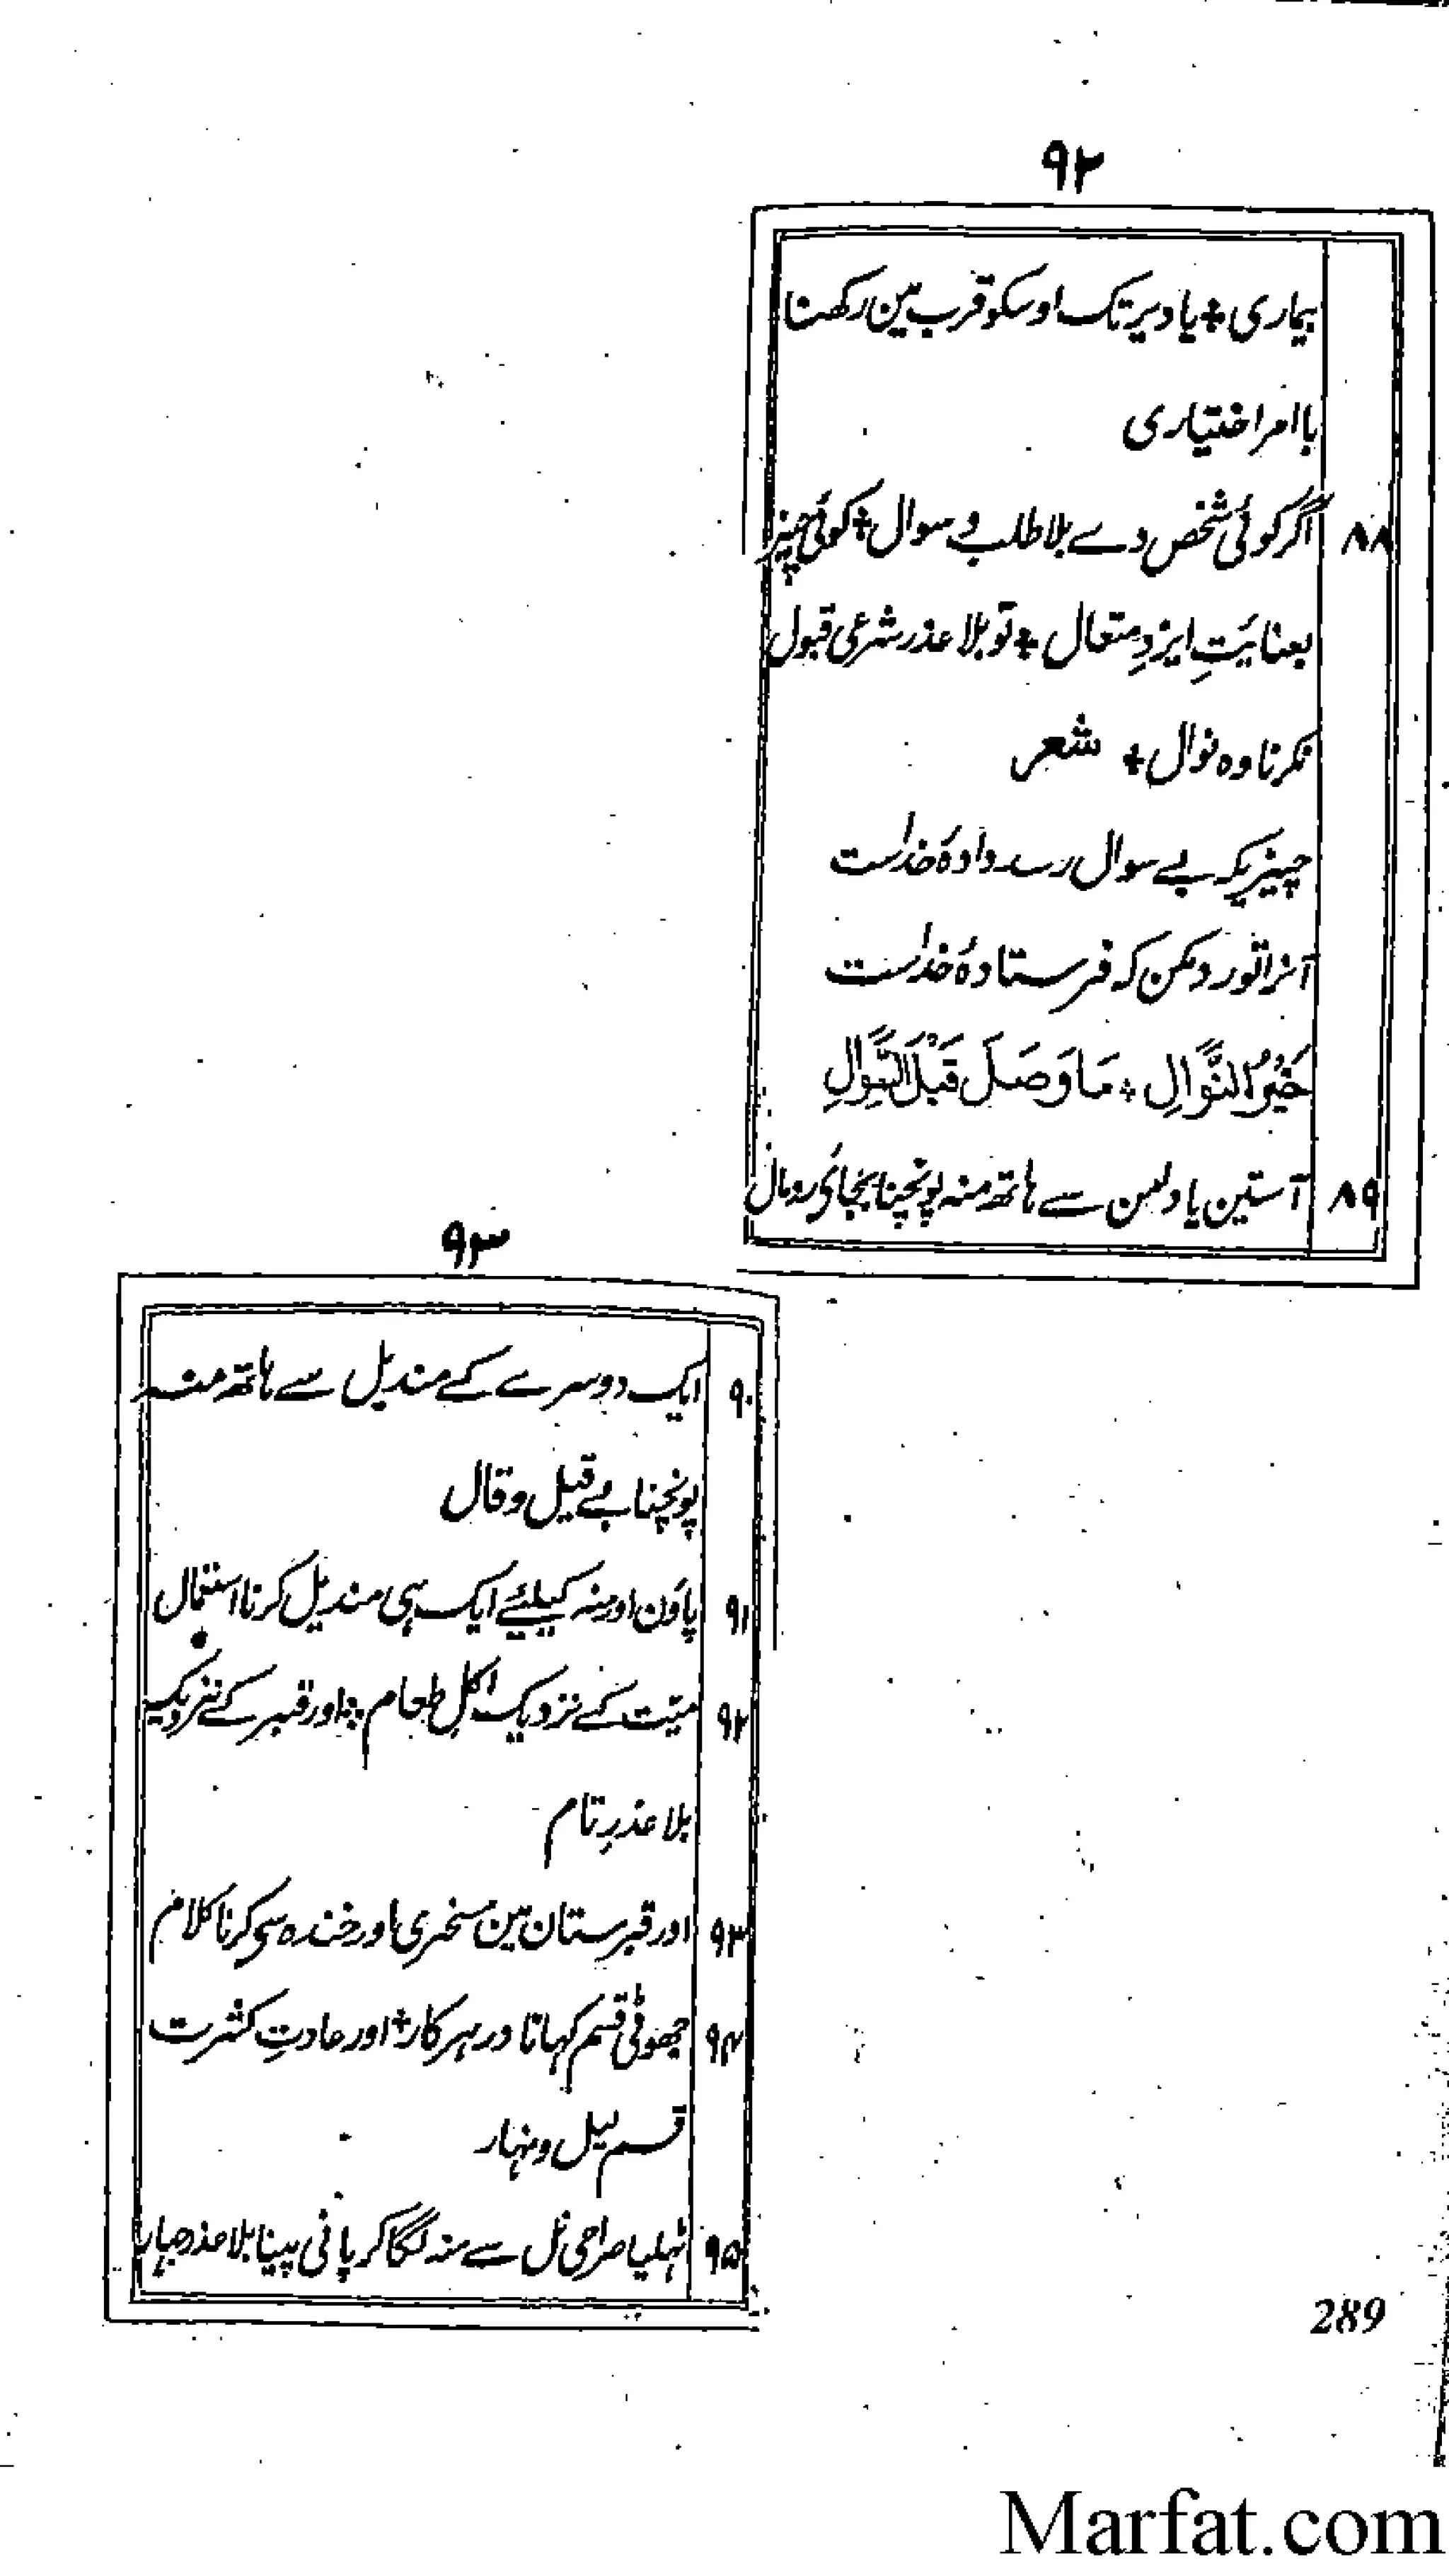 ۹۲
بیماری + یا دیر تک اوسکو قرب مین رکھنا
با امر اختیاری
۸۸ اگر کوئی شخص دے بلا طلب و سوال + کوئی چیز
بعنایَتِ ایزدِ متعال + تو بلا عذر شرعی قبول
نکرنا وہ نوال + شعر
چیزیکہ بے سوال رسد دادۂ خداست
آنرا تو رد مکن کہ فرستادۂ خداست
خَیْرُ النَّوَالِ + مَا وَصَلَ قَبْلَ السُّوَالِ
۸۹ آستین یا دامن سے ہاتھ منہ پونچنا بجای رومال
۹۳
۹۰ ایک دوسرے کے مندیل سے ہاتھ منہ
پونچنا بے قیل و قال
۹۱ پاؤن اور منہ کیلئے ایک ہی مندیل کرنا استعمال
۹۲ میّت کے نزدیک اکلِ طعام + اور قبر کے نزدیک
بلا عذرِ تام
۹۳ اور قبرستان مین مسخری اور خندہ سی کرنا کلام
۹۴ جھوٹی قسم کہانا در ہر کار + اور عادتِ کثرت
قسم لیل و نہار
۹۵ ٹہلیا صراحی نل سے منہ لگا کر پانی پینا بلا عذر
289
Marfat.com